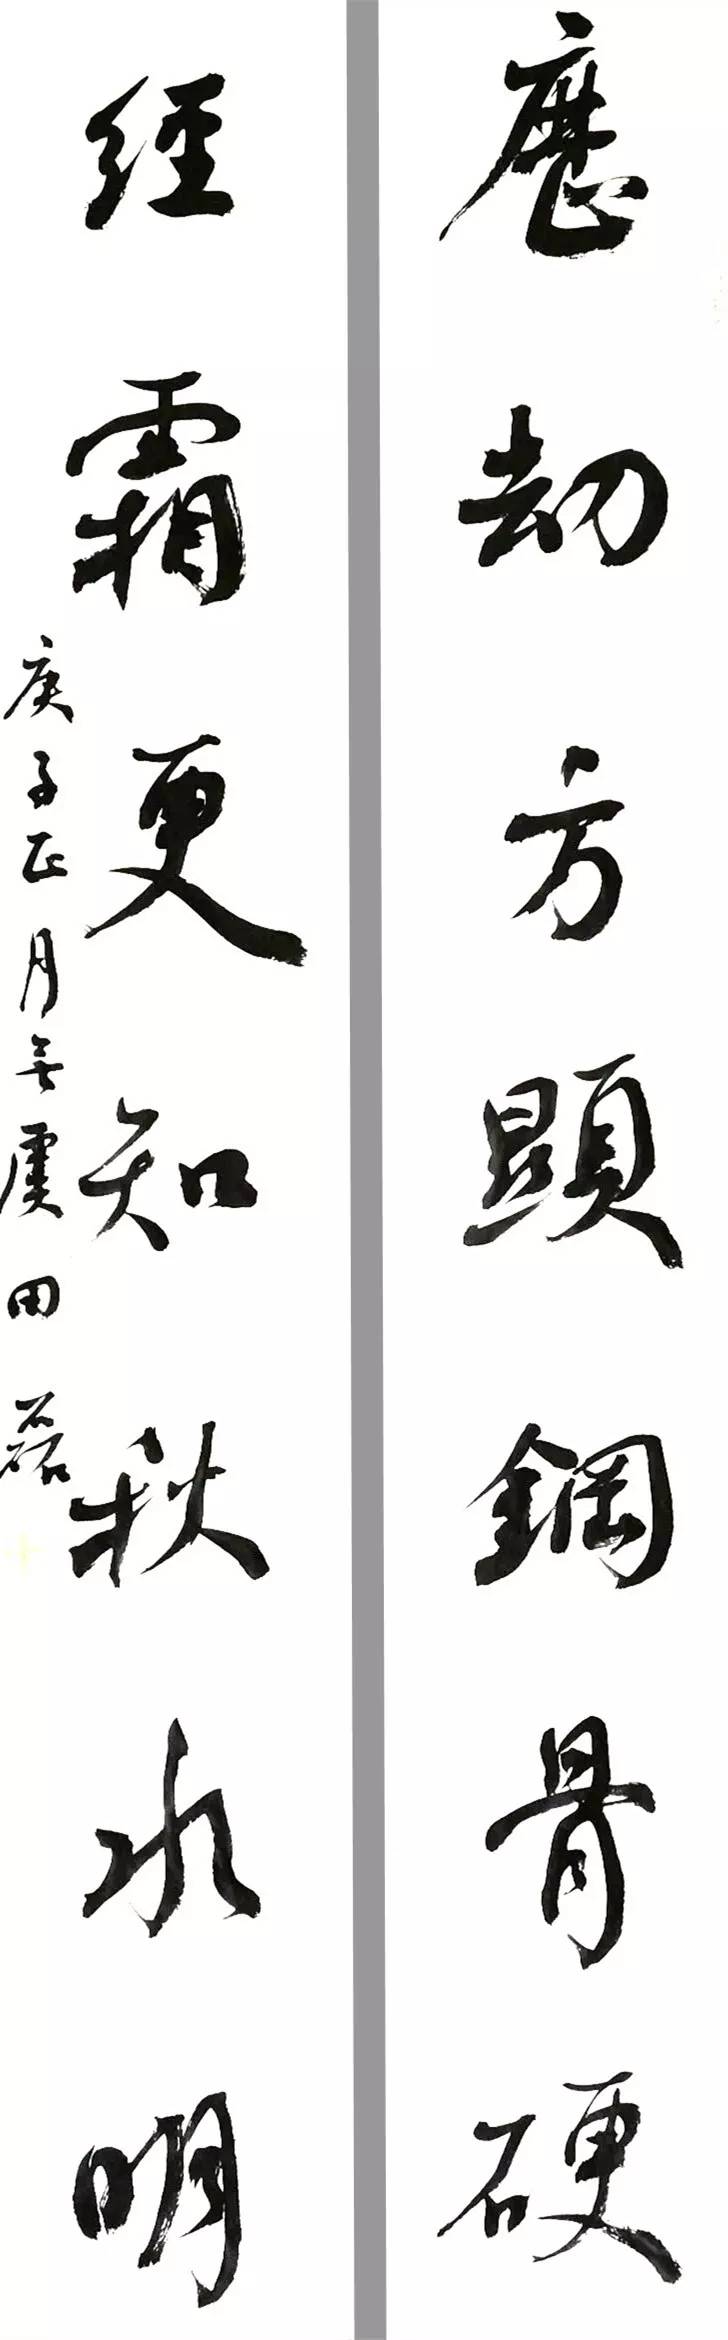 歷劫方顯鋼骨硬
經霜更知秋水明
庚子正月無虞田磊